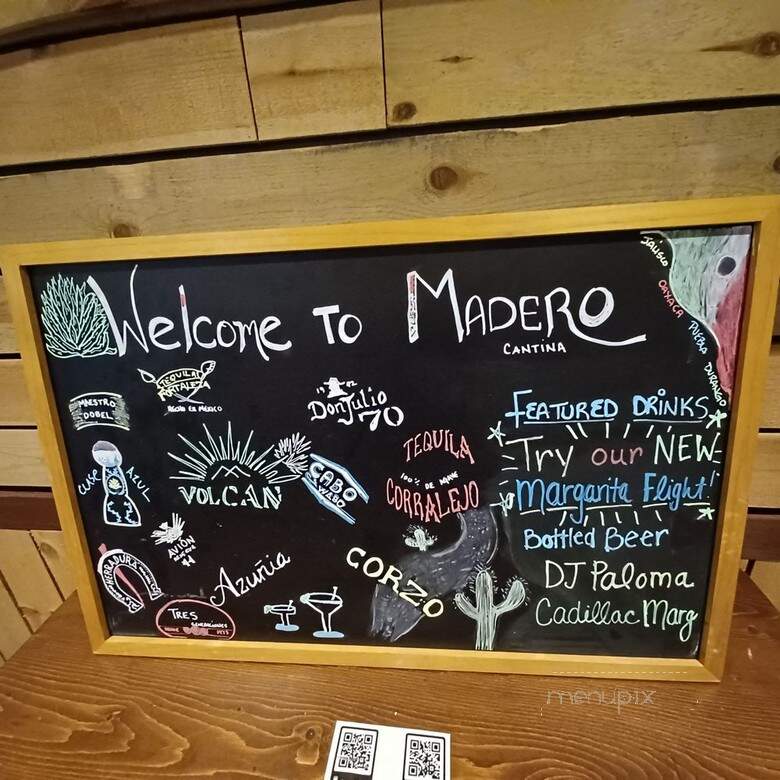 Welcome To Madero
CANTINA
JALISCO
OAXACA
PUEBLA
DURANGO
TEQUILA
FORTALEZA
HECHO EN MÉXICO
MAESTRO
DOBEL
19 42
Don Julio
70
CLASE AZUL
VOLCAN
CABO
WABO
TEQUILA
100% DE AGAVE
CORRALEJO
AVIÓN
RESERVA
44
HERRADURA
Azuñia
TRES
GENERACIONES
CORZO
FEATURED DRINKS
Try our NEW
Margarita Flight!
Bottled Beer
DJ Paloma
Cadillac Marg
menupix